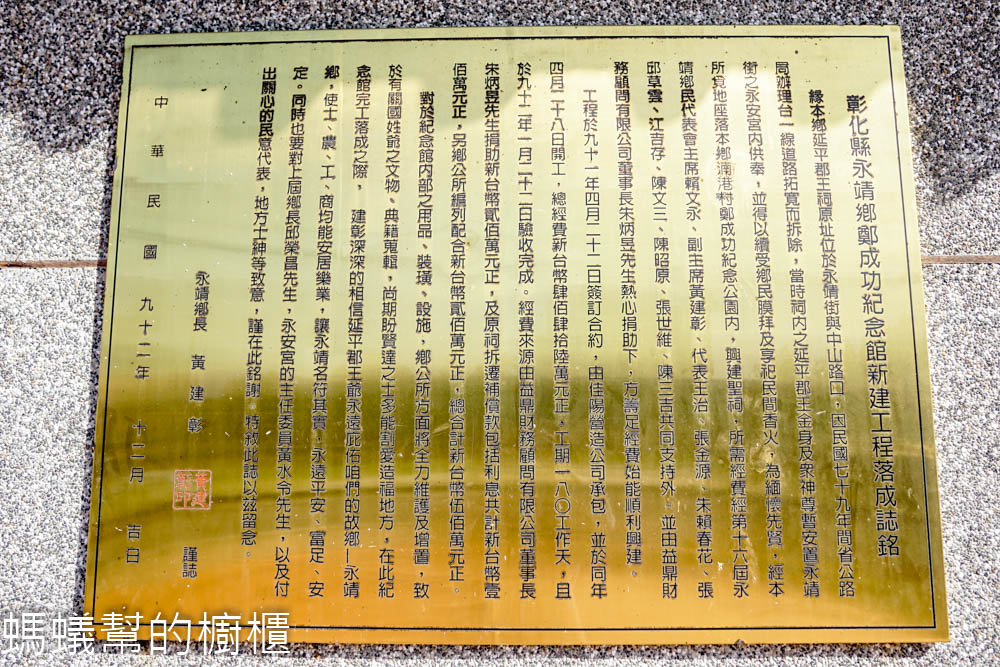 彰化縣永靖鄉鄭成功紀念館新建工程落成誌銘
緣本鄉延平郡王祠原址位於永靖街與中山路口，因民國七十九年間省公路
局辦理台一線道路拓寬而拆除，當時祠內之延平郡王金身及眾神尊暫安置永靖
街之永安宮內供奉，並得以續受鄉民膜拜及享祀民間香火，為緬懷先賢，經本
所覓地座落本鄉湳港村鄭成功紀念公園內，興建聖祠，所需經費經第十六屆永
靖鄉民代表會主席賴文永、副主席黃建彰、代表王治、張金源、朱賴春花、張
邱草雲、江吉存、陳文三、陳昭原、張世維、陳三吉共同支持外。並由益鼎財
務顧問有限公司董事長朱炳昱先生熱心捐助下，方籌足經費始能順利興建。
工程於九十一年四月二十二日簽訂合約，由佳陽營造公司承包，並於同年
四月二十八日開工，總經費新台幣肆佰肆拾陸萬元正，工期一八〇工作天，且
於九十二年一月二十二日驗收完成。經費來源由益鼎財務顧問有限公司董事長
朱炳昱先生捐助新台幣貳佰萬元正，及原祠拆遷補償款包括利息共計新台幣壹
佰萬元正，另鄉公所編列配合新台幣貳佰萬元正，總合計新台幣伍佰萬元正。
對於紀念館內部之用品、裝璜、設施，鄉公所方面將全力維護及增置，致
於有關國姓爺之文物、典籍蒐輯，尚期盼賢達之士多能割愛造福地方，在此紀
念館完工落成之際，建彰深深的相信延平郡王爺永遠庇佑咱們的故鄉—永靖
鄉，使士、農、工、商均能安居樂業，讓永靖名符其實，永遠平安、富足、安
定。同時也要對上屆鄉長邱榮昌先生，永安宮的主任委員黃水令先生，以及付
出關心的民意代表，地方士紳等致意，謹在此銘謝。特敘此誌以茲留念。
永靖鄉長 黃建彰 謹誌
黃建彰印
中華民國 九十二年 十二月 吉日
螞蟻幫的櫥櫃